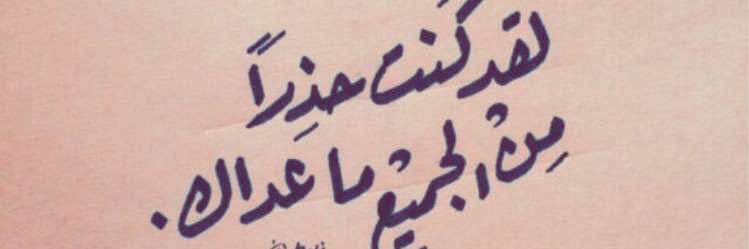 لقد كُنت حذِراً
مِن الجميع ما عداك.